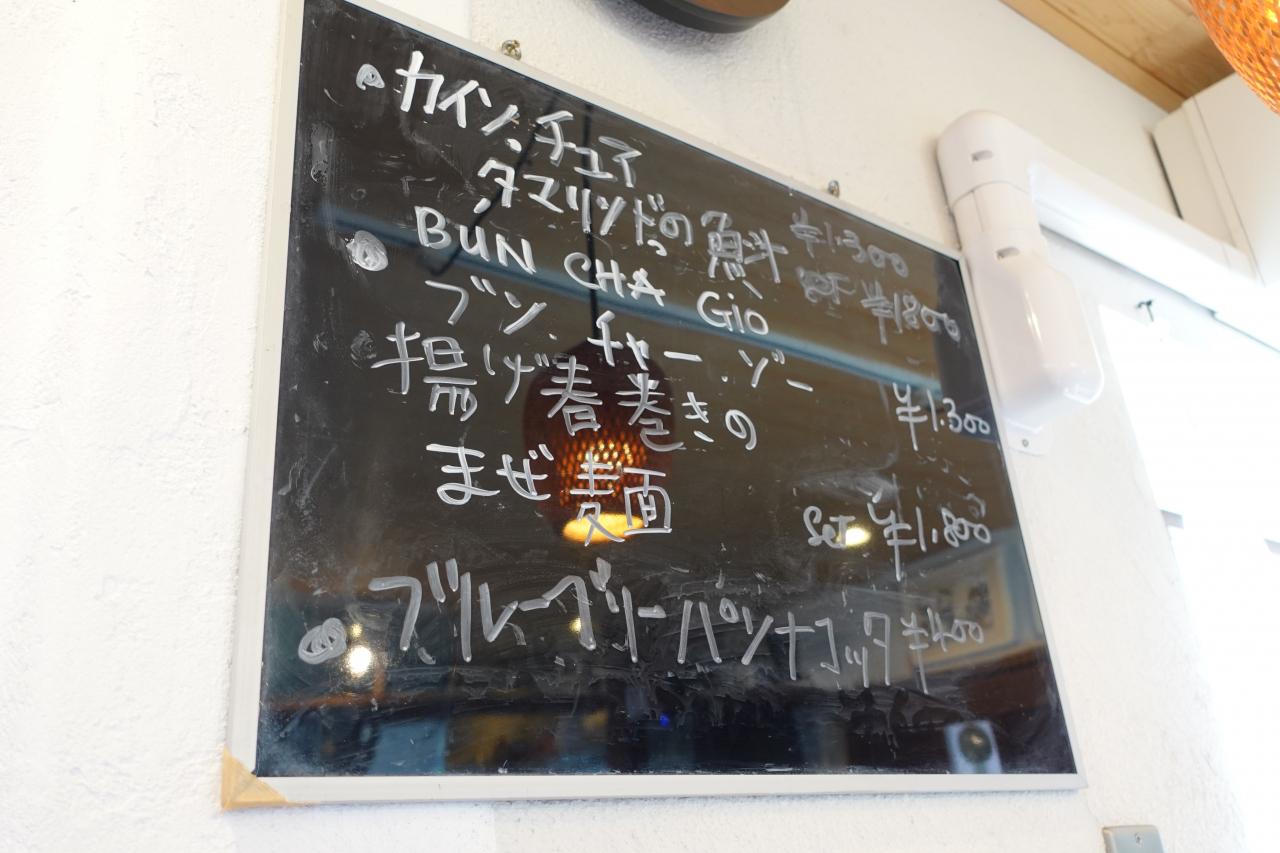 カイン.チュア
タマリンドの魚汁 ¥1.300
SET ¥1800
BÚN CHẢ GiÒ
ブン.チャー.ゾー
揚げ春巻きの ¥1.300
まぜ麺 SET ¥1.800
ブルーベリーパンナコッタ ¥400